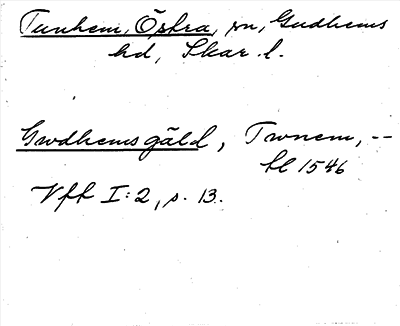 Tunhem, Östra, sn, Gudhems
hd, Skar. l.
Gwdhemsgäld, Twnem, --
hl 1546
Vfh I:2, s. 13.